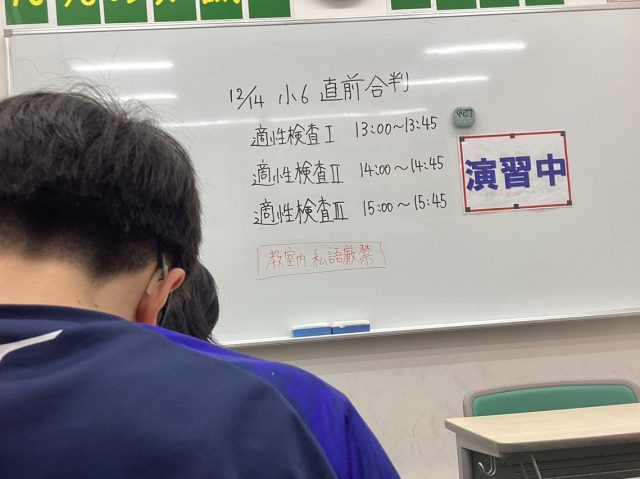 12/14 小6 直前合判
適性検査Ⅰ 13:00~13:45
適性検査Ⅱ 14:00~14:45
適性検査Ⅲ 15:00~15:45
演習中
教室内 私語厳禁